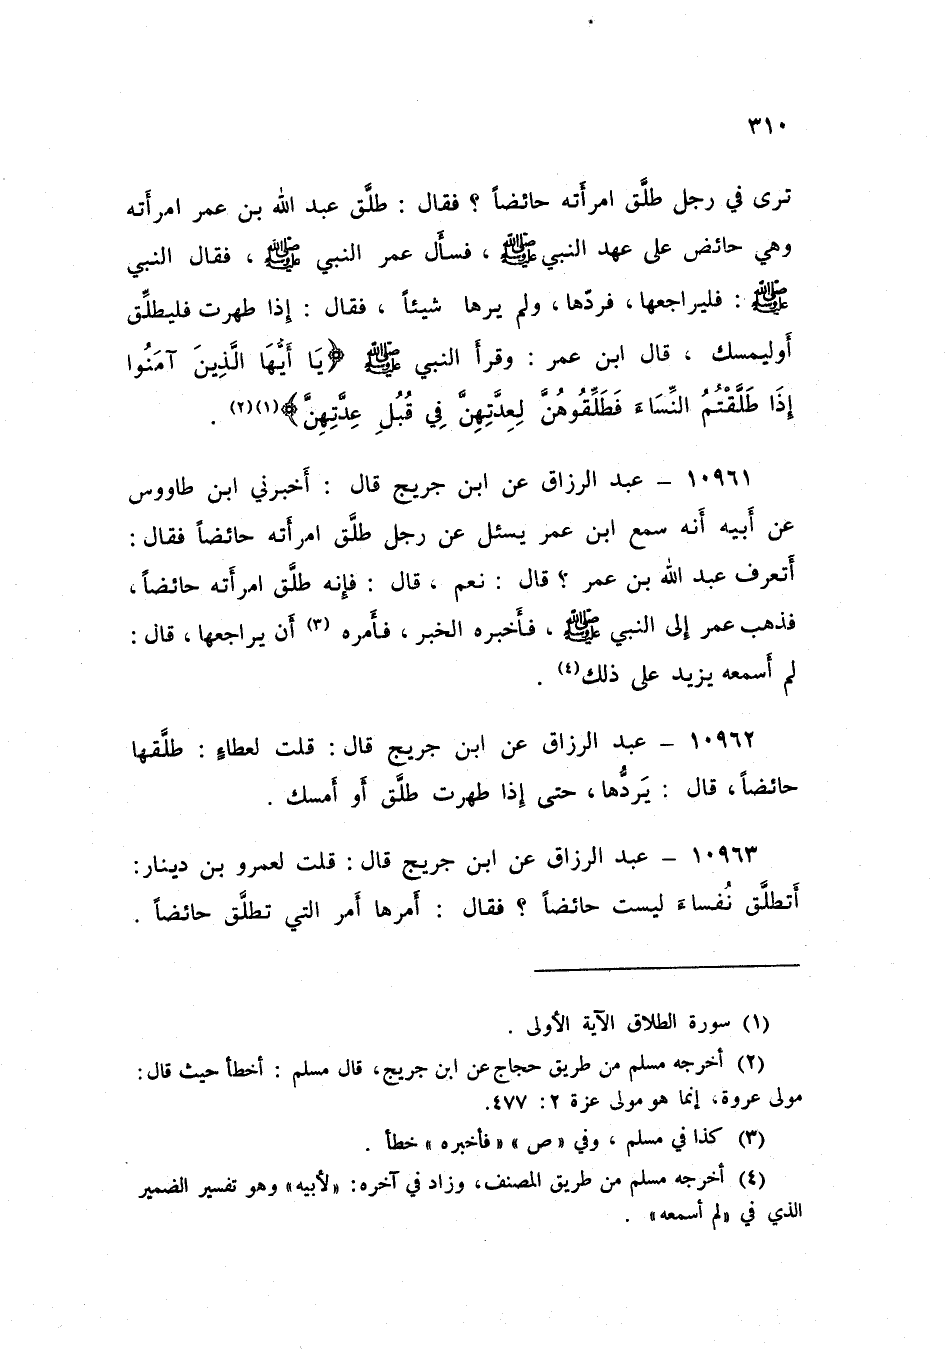 ٣١٠
ترى في رجل طلَّق امرأَته حائضاً ؟ فقال : طلَّق عبد الله بن عمر امرأَته
وهي حائض على عهد النبي ﷺ ، فسأَل عمر النبي ﷺ ، فقال النبي
ﷺ : فليراجعها ، فردّها ، ولم يرها شيئاً ، فقال : إذا طهرت فليطلِّق
أَوليمسك ، قال ابن عمر : وقرأَ النبي ﷺ ﴿يَا أَيُّهَا الَّذِينَ آمَنُوا
إِذَا طَلَّقْتُمُ النِّسَاءَ فَطَلِّقُوهُنَّ لِعِدَّتِهِنَّ فِي قُبُلِ عِدَّتِهِنَّ﴾(١)(٢) .
١٠٩٦١ – عبد الرزاق عن ابن جريج قال : أَخبرني ابن طاووس
عن أَبيه أَنه سمع ابن عمر يسئل عن رجل طلَّق امرأَته حائضاً فقال :
أَتعرف عبد الله بن عمر ؟ قال : نعم ، قال : فإنه طلَّق امرأَته حائضاً ،
فذهب عمر إلى النبي ﷺ ، فأَخبره الخبر ، فأَمره (٣) أَن يراجعها ، قال :
لم أَسمعه يزيد على ذلك(٤) .
١٠٩٦٢ – عبد الرزاق عن ابن جريج قال : قلت لعطاءٍ : طلَّقها
حائضاً ، قال : يَردُّها ، حتى إذا طهرت طلَّق أَو أَمسك .
١٠٩٦٣ – عبد الرزاق عن ابن جريج قال : قلت لعمرو بن دينار :
أَتطلَّق نُفساءَ ليست حائضاً ؟ فقال : أَمرها أَمر التي تطلَّق حائضاً .
(١) سورة الطلاق الآية الأولى .
(٢) أخرجه مسلم من طريق حجاج عن ابن جريج ، قال مسلم : أخطأ حيث قال :
مولى عروة ، إنما هو مولى عزة ٢ : ٤٧٧.
(٣) كذا في مسلم ، وفي « ص » « فأخبره » خطأ .
(٤) أخرجه مسلم من طريق المصنف ، وزاد في آخره : «لأبيه» وهو تفسير الضمير
الذي في «لم أسمعه» .